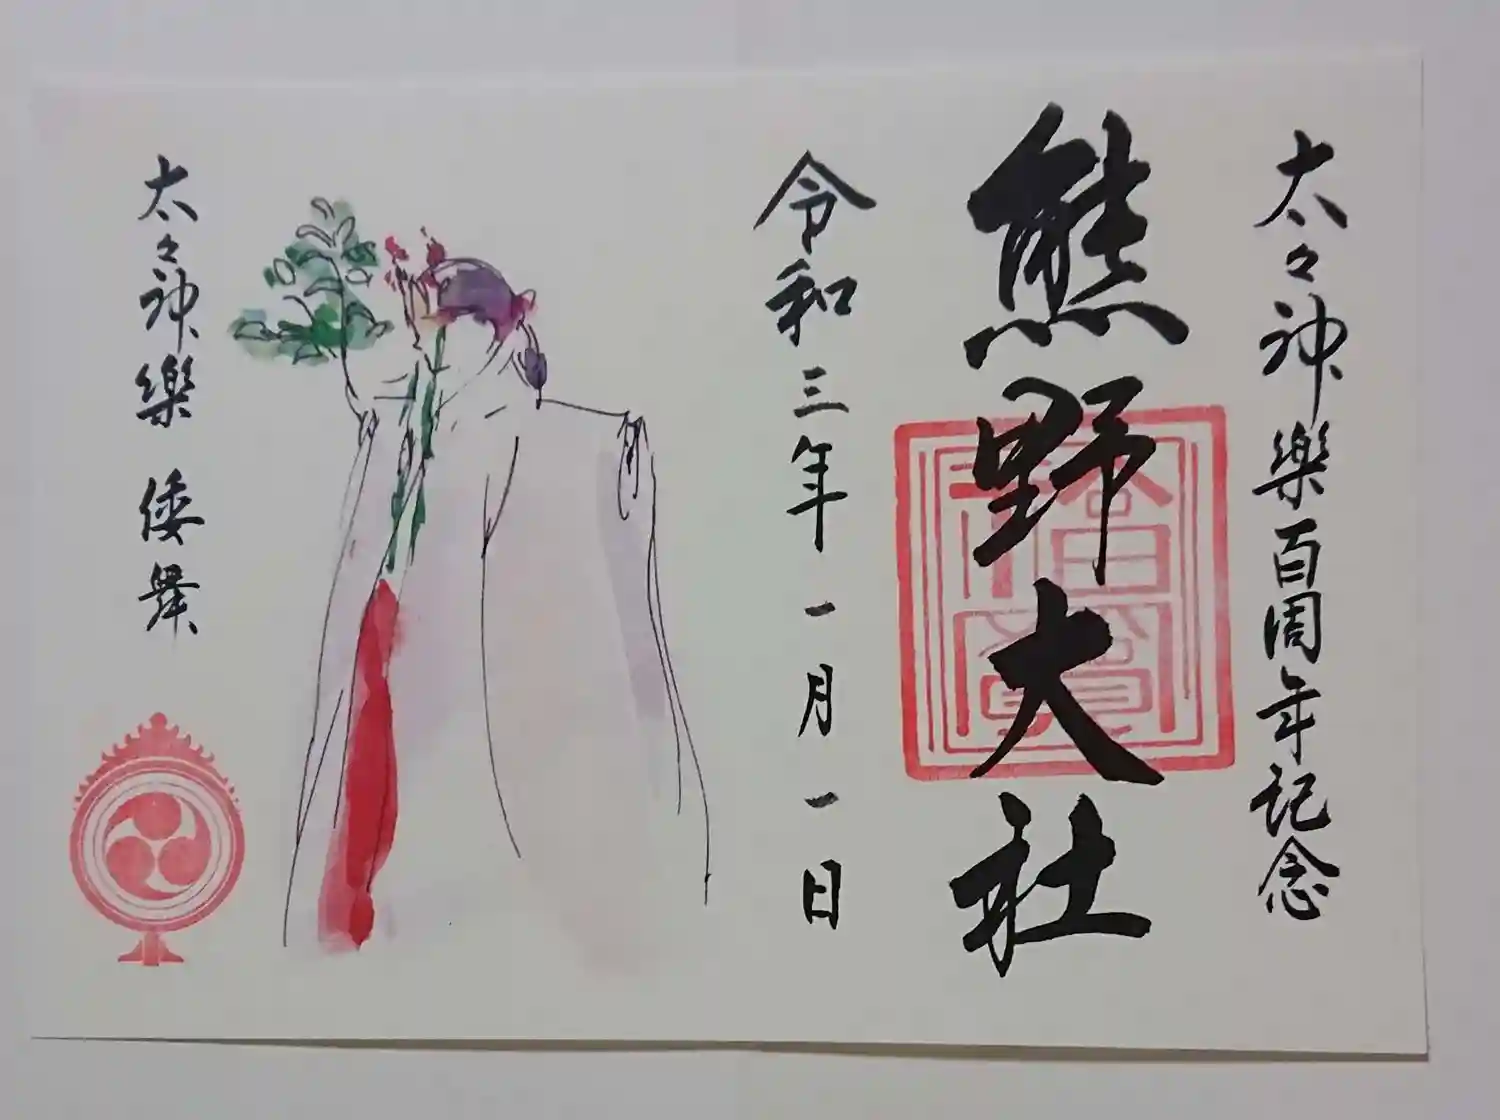 太々神樂百周年记念
熊野大社
令和三年一月一日
太々神樂 倭舞